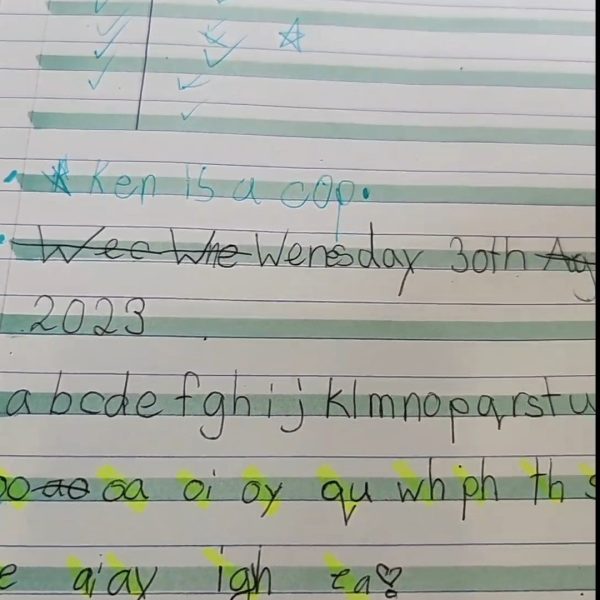 Ken is a cop.
Wensday 30th
2023
a b c d e f g h i j k l m n o p q r s t u
oa oi oy qu wh ph th
ai ay igh ea